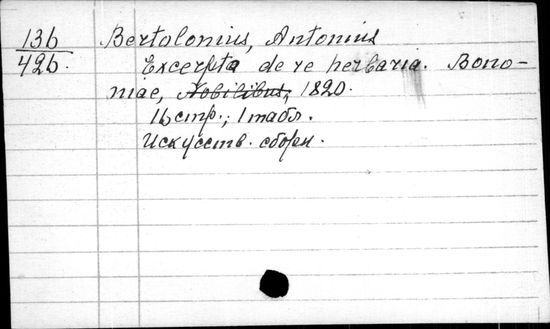 136 Bertolonius, Antonius
426. Excerpta de re herbaria. Bono-
niae, Nobilibus, 1820.
16 стр.; 1 табл.
Искусств. сборн.